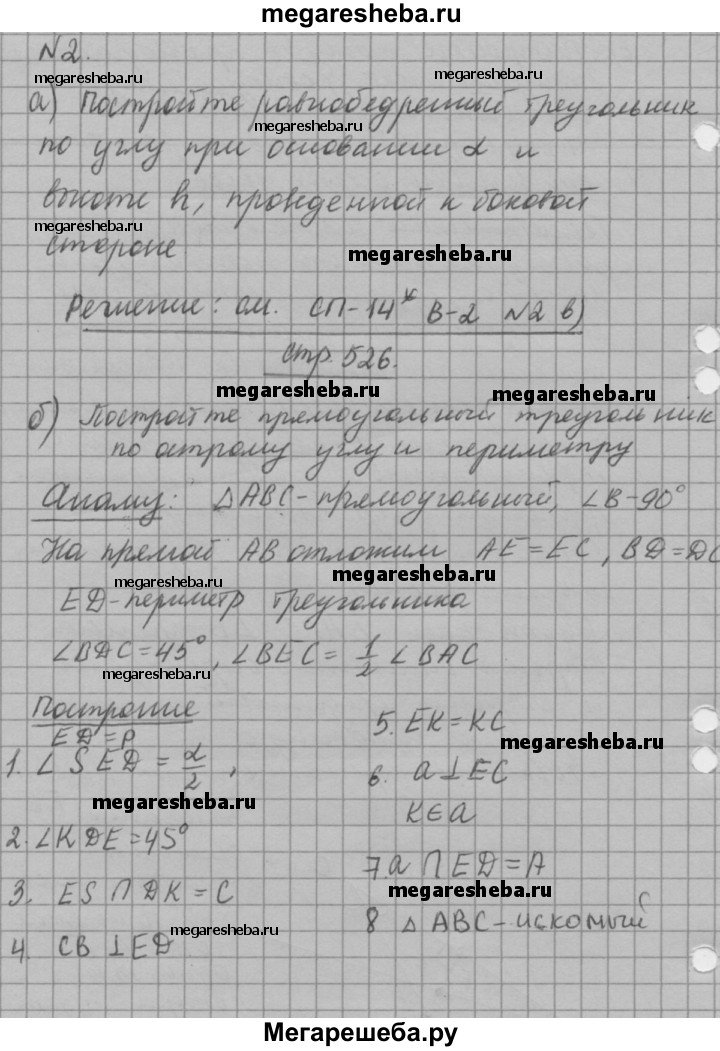 megaresheba.ru
N2.
megaresheba.ru
megaresheba.ru
а) Постройте равнобедренный треугольник
megaresheba.ru
по углу при основании α и
высоте h, проведенной к боковой
megaresheba.ru
стороне.
megaresheba.ru
Решение: см. СП-14* В-2 N2 в)
стр. 526.
megaresheba.ru
megaresheba.ru
б) Постройте прямоугольный треугольник
по острому углу и периметру
Анализ: △ABC - прямоугольный, ∠B-90°
На прямой AB отложим AE=EC, BD=DC
megaresheba.ru
megaresheba.ru
ED-периметр треугольника
∠BDC=45°, ∠BEC= 1/2 ∠BAC
megaresheba.ru
Построение
ED=P
1. ∠SED = α/2,
megaresheba.ru
2. ∠KDE=45°
3. ES ∩ DK = C
4. CB ⊥ ED
megaresheba.ru
5. EK=KC
megaresheba.ru
6. a ⊥ EC
K ∈ a
7. a ∩ ED = A
megaresheba.ru
8 △ABC-искомый
megaresheba.ru
Мегарешеба.ру